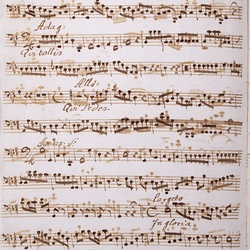 Adag:
Qui tollis
Allo:
Qui Sedes.
Largo
In gloria